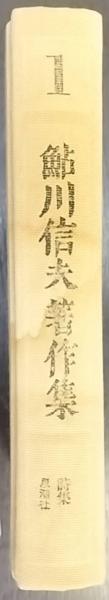 1
鮎川信夫著作集
詩集
思潮社